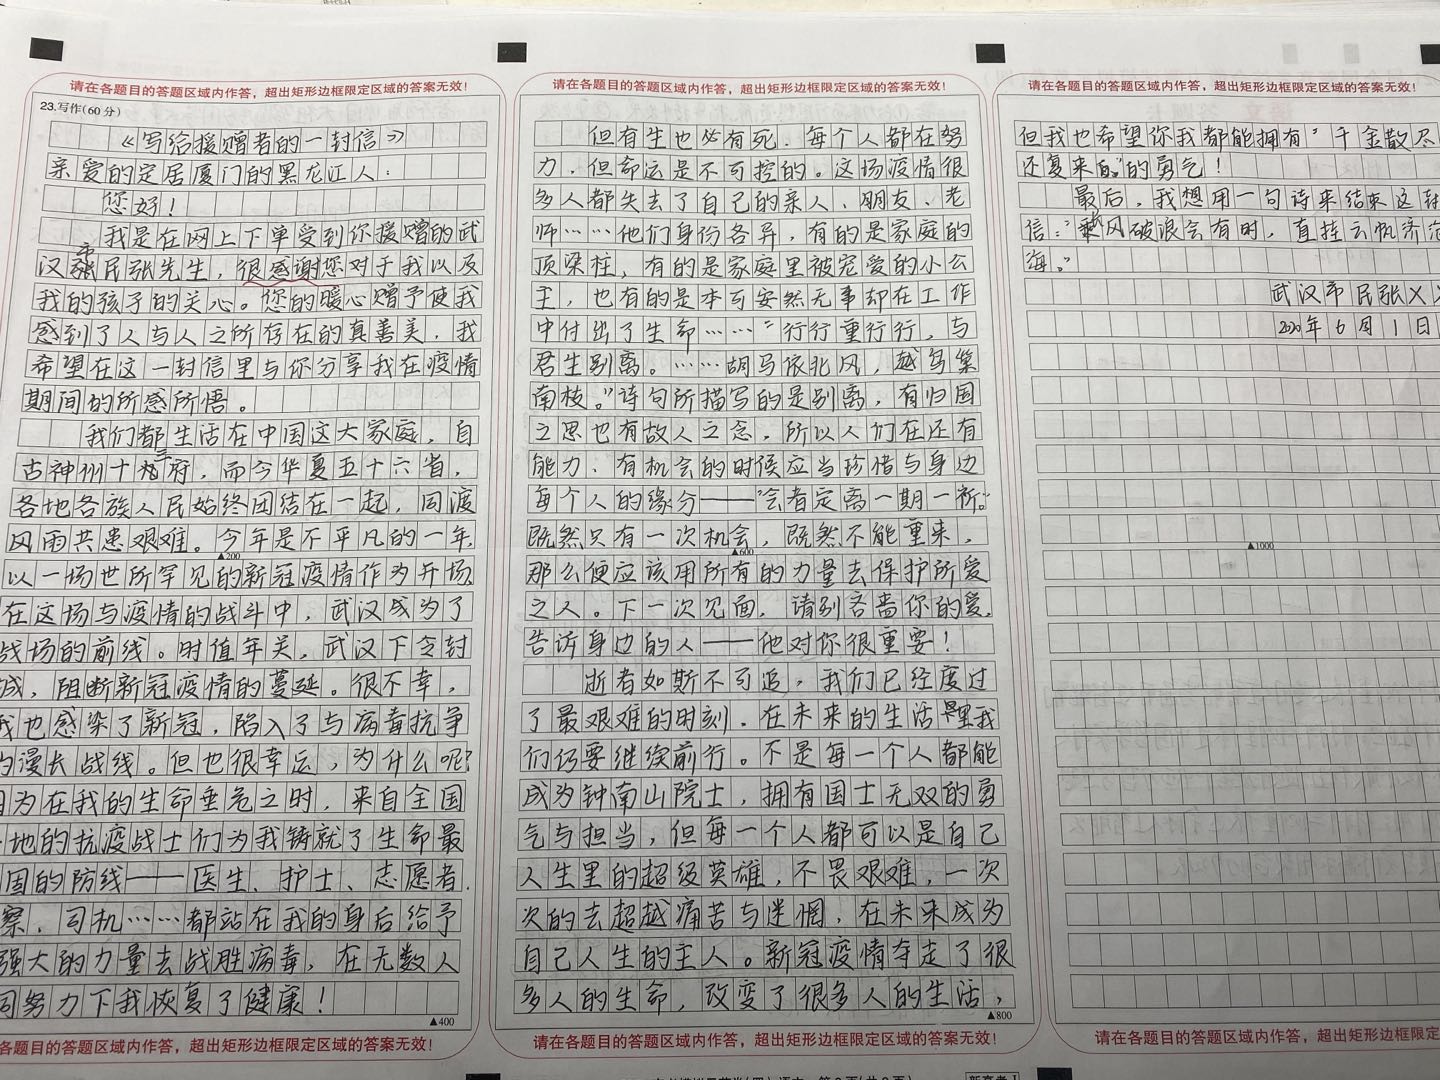 请在各题目的答题区域内作答，超出矩形边框限定区域的答案无效！
23.写作(60分)
《写给援赠者的一封信》
亲爱的定居厦门的黑龙江人：
您好！
我是在网上下单受到你援赠的武
汉市民张先生，很感谢您对于我以及
我的孩子的关心。您的暖心赠予使我
感到了人与人之所存在的真善美，我
希望在这一封信里与你分享我在疫情
期间的所感所悟。
我们都生活在中国这大家庭，自
古神州十三府，而今华夏五十六省，
各地各族人民始终团结在一起，同渡
风雨共患艰难。今年是不平凡的一年，
▲200
以一场世所罕见的新冠疫情作为开场
在这场与疫情的战斗中，武汉成为了
战场的前线。时值年关，武汉下令封
城，阻断新冠疫情的蔓延。很不幸，
我也感染了新冠，陷入了与病毒抗争
的漫长战线。但也很幸运，为什么呢？
因为在我的生命垂危之时，来自全国
地的抗疫战士们为我铸就了生命最
固的防线——医生、护士、志愿者、
察、司机……都站在我的身后给予
强大的力量去战胜病毒，在无数人
同努力下我恢复了健康！
▲400
各题目的答题区域内作答，超出矩形边框限定区域的答案无效！
请在各题目的答题区域内作答，超出矩形边框限定区域的答案无效！
但有生也必有死，每个人都在努
力，但命运是不可控的。这场疫情很
多人都失去了自己的亲人、朋友、老
师……他们身份各异，有的是家庭的
顶梁柱，有的是家庭里被宠爱的小公
主，也有的是本可安然无事却在工作
中付出了生命……“行行重行行，与
君生别离。……胡马依北风，越鸟巢
南枝。”诗句所描写的是别离，有归国
之思也有故人之念，所以人们在还有
能力、有机会的时候应当珍惜与身边
每个人的缘分——“会者定离一期一祈。”
既然只有一次机会，既然不能重来，
▲600
那么便应该用所有的力量去保护所爱
之人。下一次见面，请别吝啬你的爱，
告诉身边的人——他对你很重要！
逝者如斯不可追，我们已经度过
了最艰难的时刻，在未来的生活里我
们仍要继续前行。不是每一个人都能
成为钟南山院士，拥有国士无双的勇
气与担当，但每一个人都可以是自己
人生里的超级英雄，不畏艰难，一次
次的去超越痛苦与迷惘，在未来成为
自己人生的主人。新冠疫情夺走了很
多人的生命，改变了很多人的生活，
▲800
请在各题目的答题区域内作答，超出矩形边框限定区域的答案无效！
请在各题目的答题区域内作答，超出矩形边框限定区域的答案无效！
但我也希望你我都能拥有“千金散尽
还复来”的勇气！
最后，我想用一句诗来结束这封
信：“乘风破浪会有时，直挂云帆济沧
海。”
武汉市民张××
2020年6月1日
▲1000
请在各题目的答题区域内作答，超出矩形边框限定区域的答案无效！